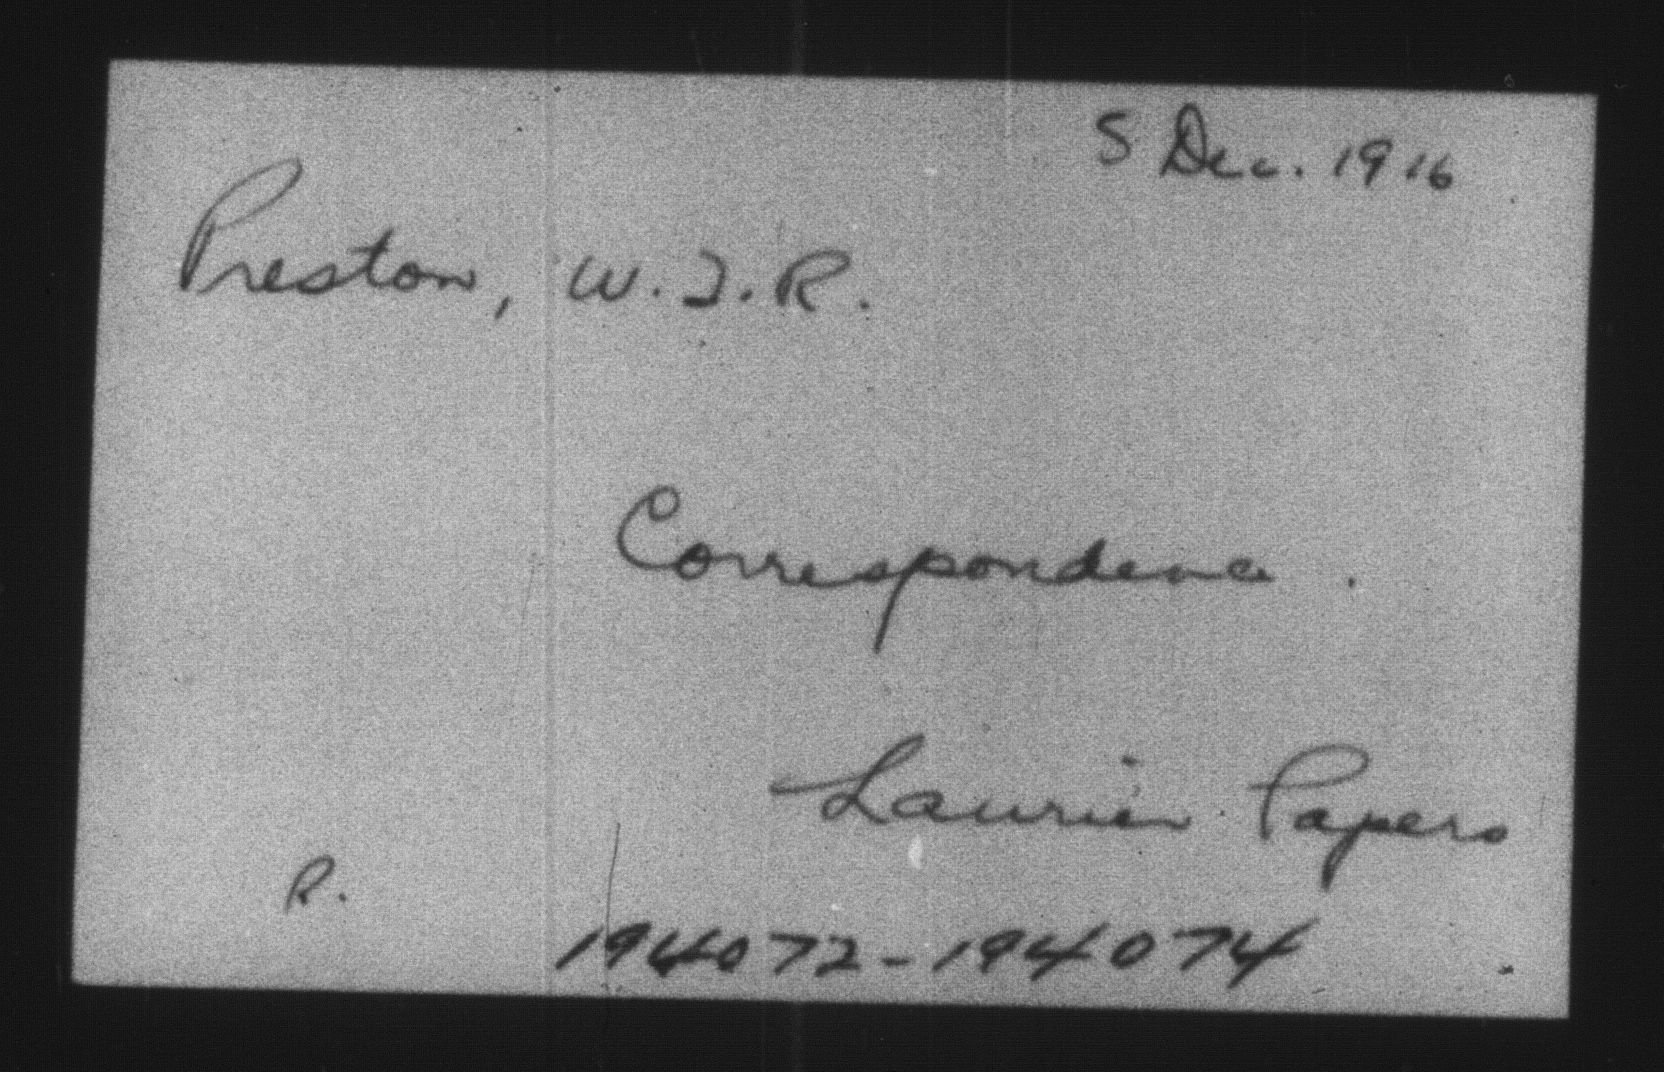 5 Dec. 1916
Preston, W.J.R.
Correspondence.
Laurier Papers
R.
194072-194074